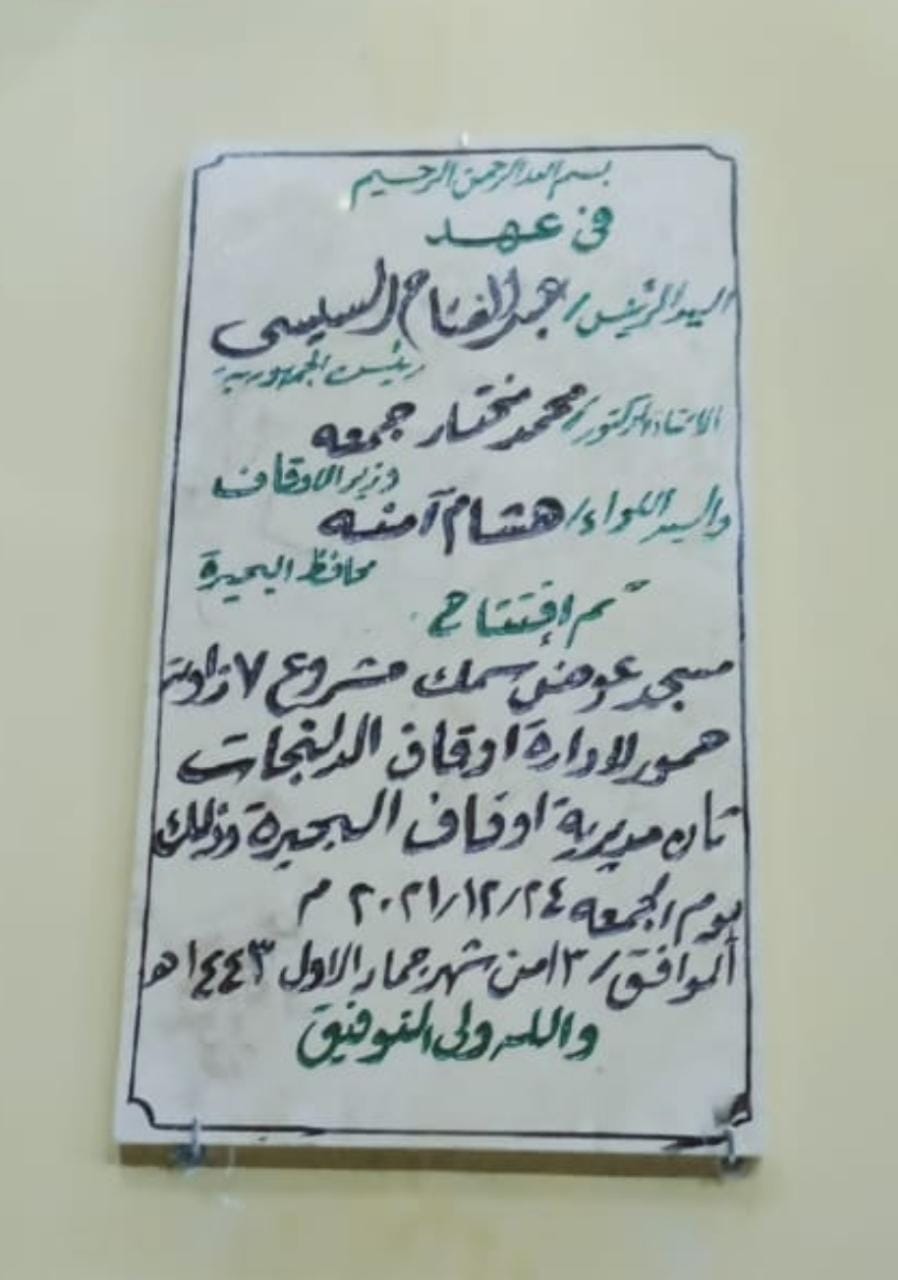 بسم الله الرحمن الرحيم
فى عهد
السيد الرئيس/ عبد الفتاح السيسى
رئيس الجمهورية
الاستاذ الدكتور/ محمد مختار جمعه
وزير الاوقاف
والسيد اللواء/ هشام آمنه
محافظ البحيرة
تم إفتتاح
مسجد عوض سمك مشروع ٧ زاوية
حمور لادارة اوقاف الدلنجات
مديرية اوقاف البحيرة وذلك
يوم الجمعه ٢٠٢١/١٢/٢٤ م
الموافق/ ١٣ من شهر جماد الاول ١٤٤٣ هـ
والله ولى التوفيق